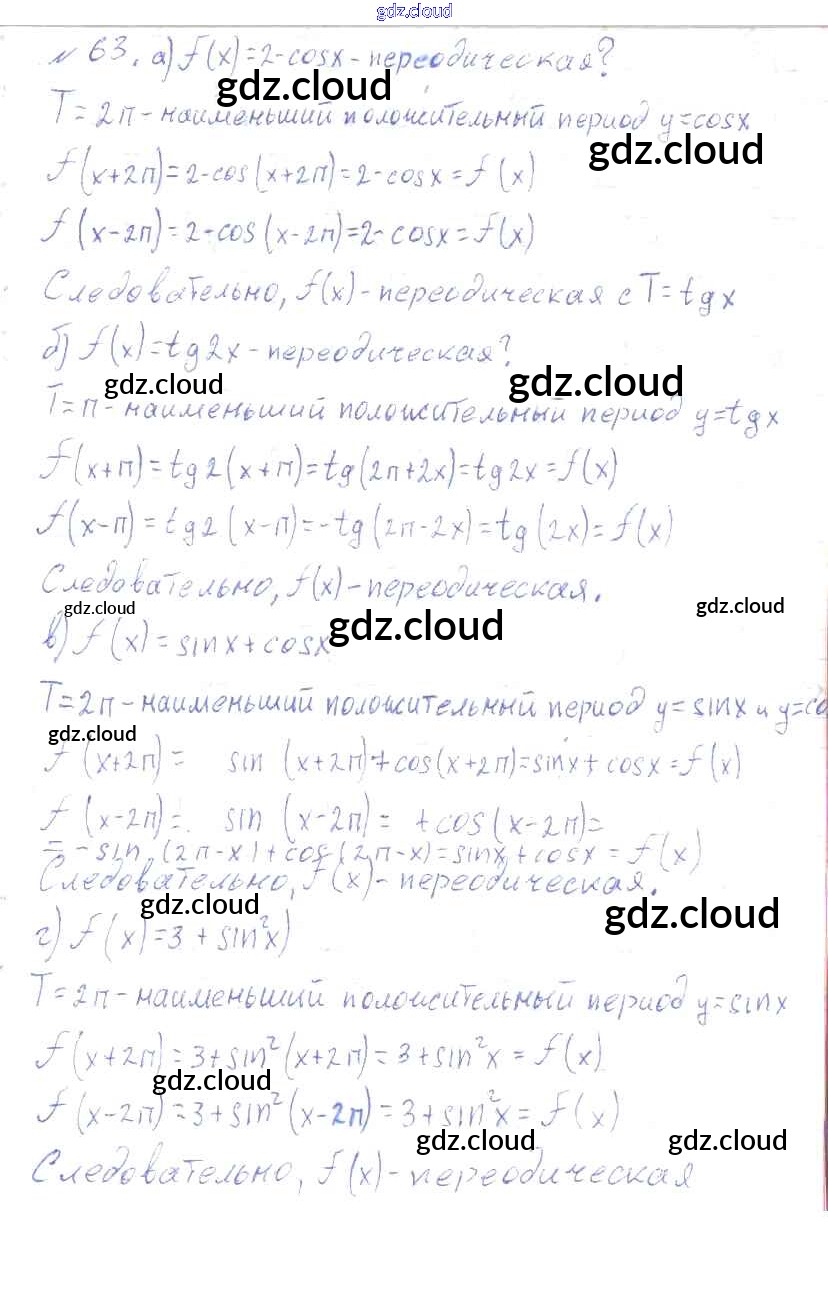 gdz.cloud
№ 63. а) f(x)=2-cosx - переодическая?
gdz.cloud
T=2п - наименьший положительный период y=cosx
gdz.cloud
f(x+2п)=2-cos(x+2п)=2-cosx=f(x)
f(x-2п)=2-cos(x-2п)=2-cosx=f(x)
Следовательно, f(x) - переодическая с T=tgx
б) f(x)=tg2x - переодическая?
gdz.cloud gdz.cloud
T=п - наименьший положительный период y=tgx
f(x+п)=tg2(x+п)=tg(2п+2x)=tg2x=f(x)
f(x-п)=tg2(x-п)=-tg(2п-2x)=tg(2x)=f(x)
Следовательно, f(x) - переодическая.
gdz.cloud gdz.cloud gdz.cloud
в) f(x)=sinx+cosx
T=2п - наименьший положительный период y=sinx и y=co
gdz.cloud
f(x+2п)= sin(x+2п)+cos(x+2п)=sinx+cosx=f(x)
f(x-2п)= sin(x-2п)= +cos(x-2п)=
=-sin(2п-x)+cos(2п-x)=sinx+cosx=f(x)
Следовательно, f(x) - переодическая.
gdz.cloud gdz.cloud
г) f(x)=3+sin²x)
T=2п - наименьший положительный период y=sinx
f(x+2п)=3+sin²(x+2п)=3+sin²x=f(x)
gdz.cloud
f(x-2п)=3+sin²(x-2п)=3+sin²x=f(x)
gdz.cloud gdz.cloud
Следовательно, f(x) - переодическая